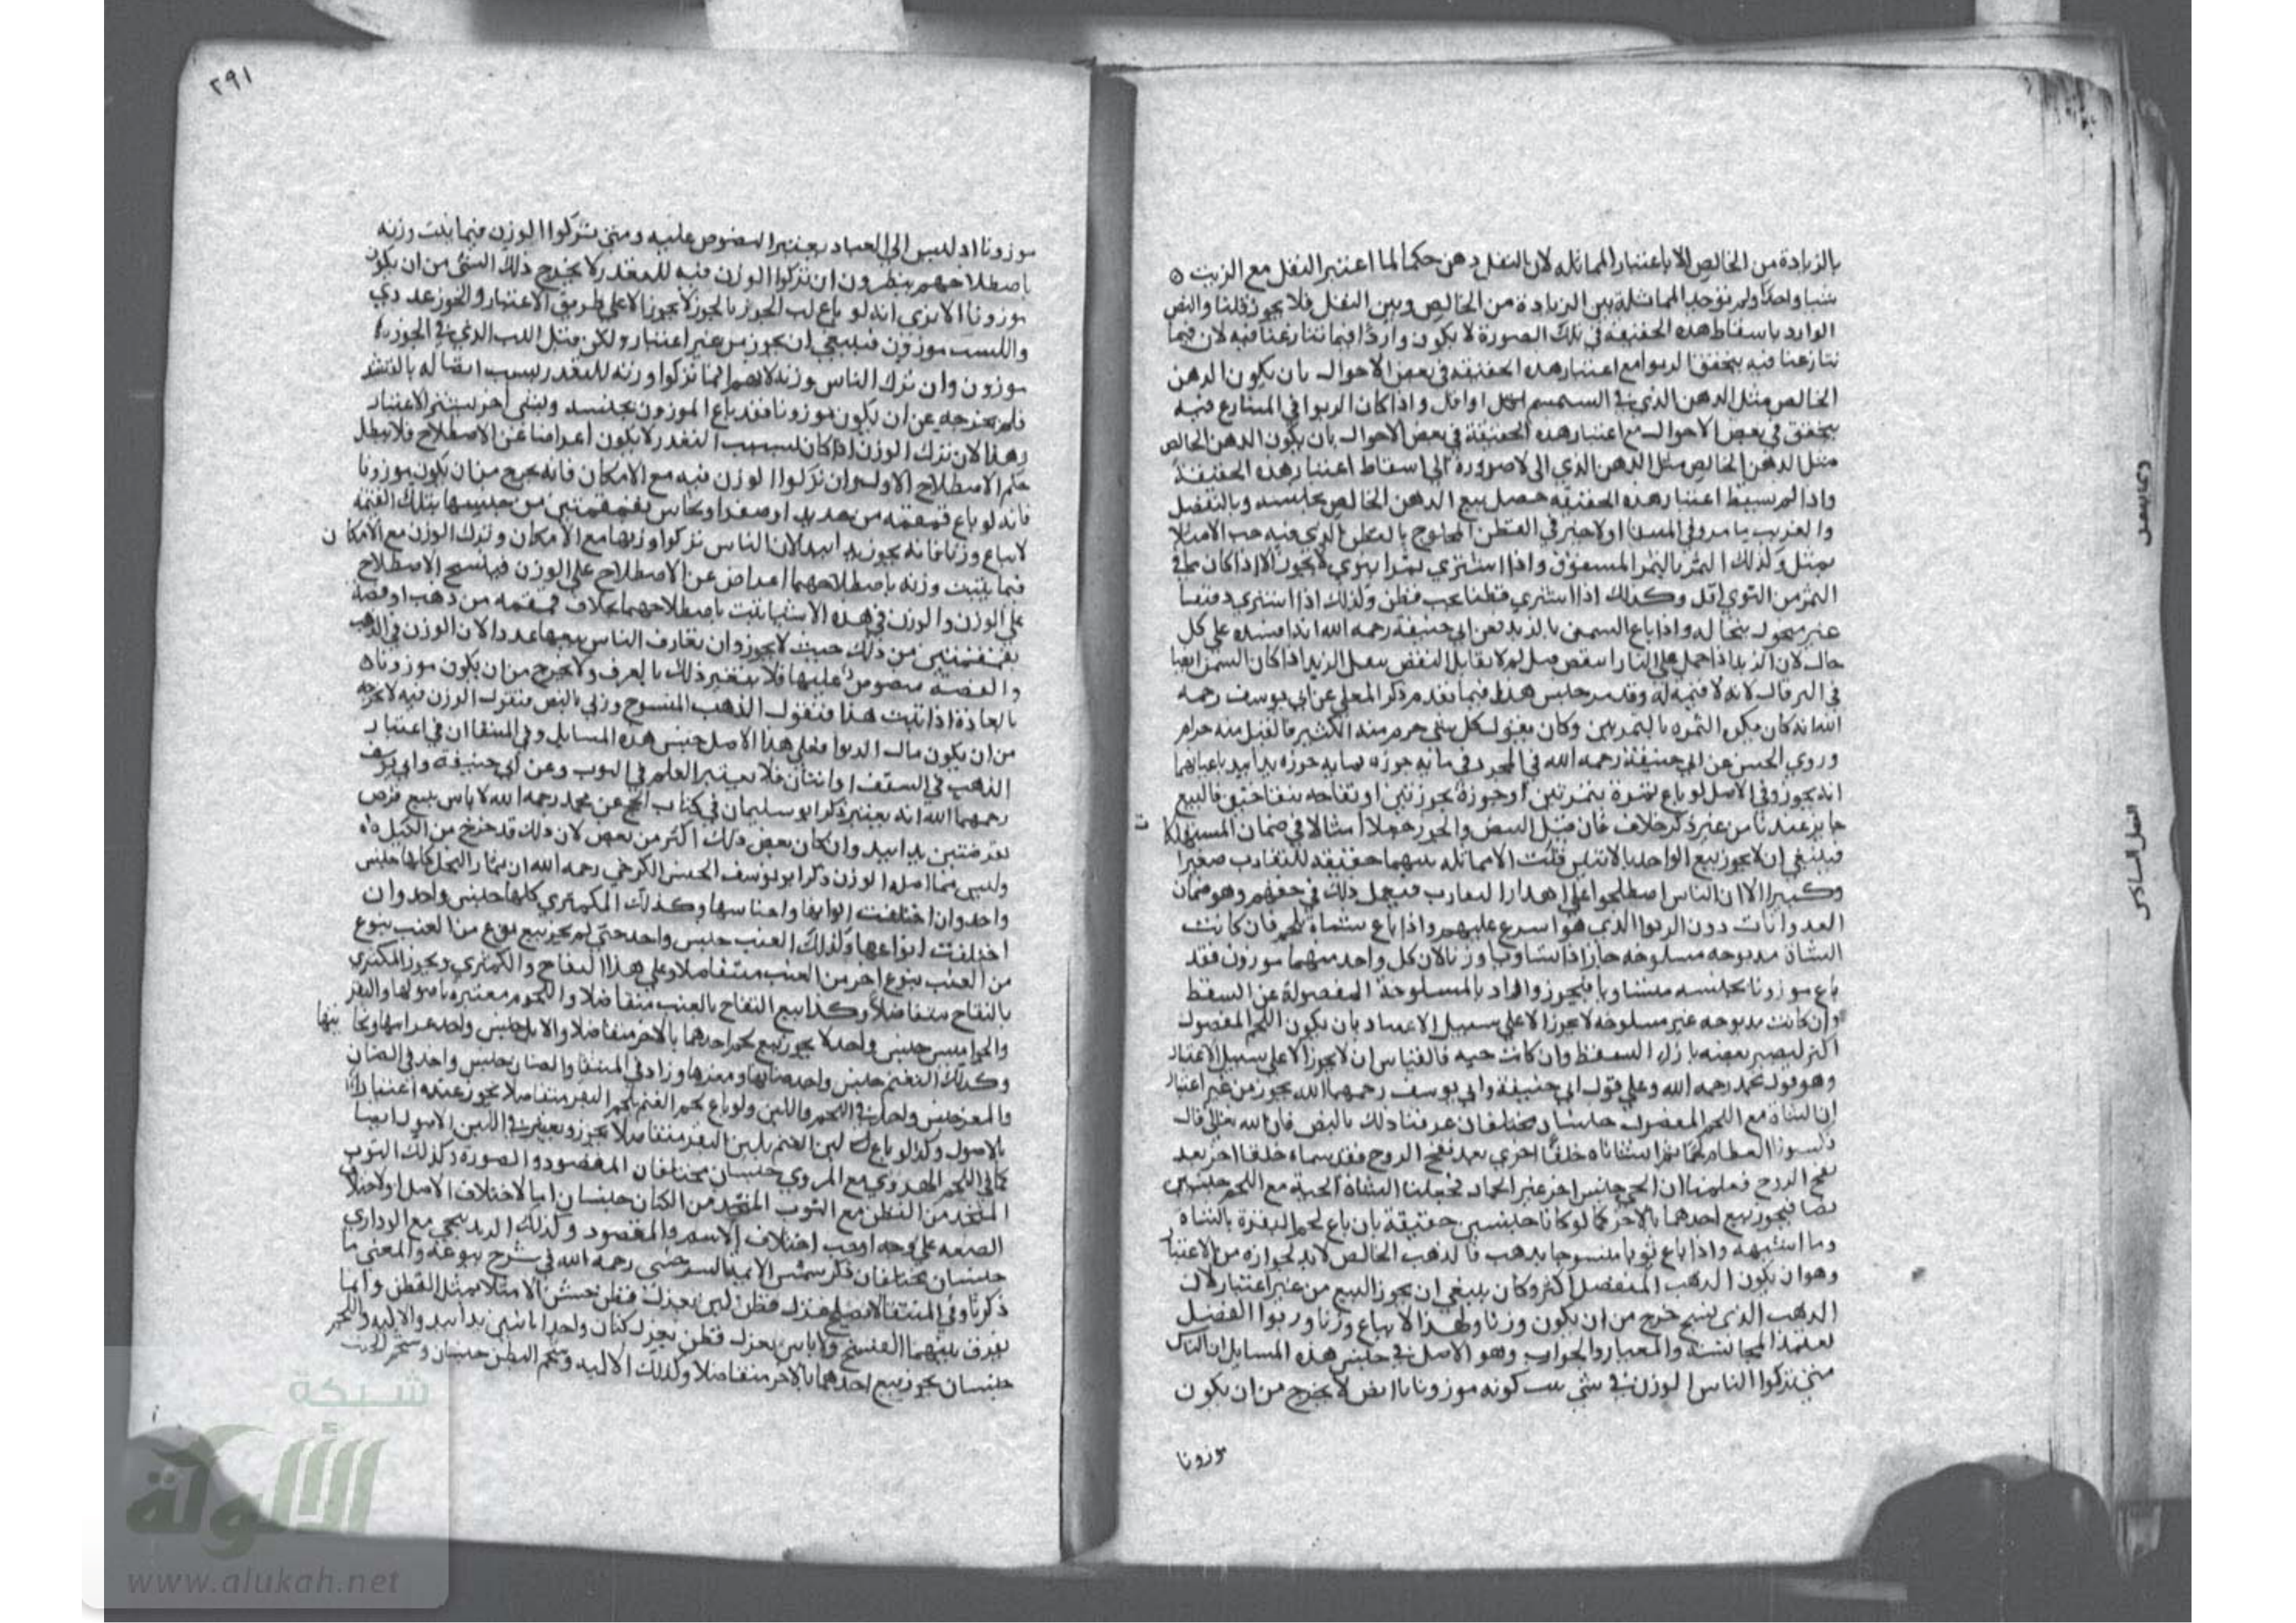 بالزيادة من الخالص الا باعتبار المماثلة لان بالثفل دهن حكما لما اعتبر الثفل مع الزيت
شيا واحدا ولم توجد المماثلة بين الزيادة من الخالص وبين الثفل فلا يجوز قلنا والنص
الوارد باسقاط هذه الحقيقة في تلك الصورة لا يكون واردا فيما تنازعنا فيه لان فيما
تنازعنا فيه يتحقق الربوا مع اعتبار هذه الحقيقة في بعض الاحوال بان يكون الدهن
الخالص مثل الدهن الذي في السمسم او اقل واذا كان الربوا في المتنازع فيه
يتحقق في بعض الاحوال مع اعتبار هذه الحقيقة في بعض الاحوال بان يكون الدهن الخالص
مثل الدهن الخالص مثل الدهن الذي لا ضرورة الى اسقاط اعتبار هذه الحقيقة
واذا لم يسقط اعتبار هذه الحقيقة حصل بيع الدهن الخالص بجنسه وبالتفضل
والتقريب ما مر وفي المنتقا ولا خير في القطن المحلوج بالقطن الذي فيه حب الا مثلا
بمثل وكذلك التمر بالتمر المنقوق واذا اشترى تمرا بنوى لا يجوز الا اذا كان ما في
التمر من النوى اقل وكذلك اذا اشترى قطنا بحب قطن وكذلك اذا اشترى دقيقا
غير منخول بنخالة واذا باع السمن بالزبد فعن ابي حنيفة رحمه الله انه افسده على كل
حال لان الزبد اذا حمل على النار انتقص
في البر قال لانه لا قيمة له وقد مر جنس هذا فيما تقدم ذكر المعلى عن ابي يوسف رحمه
الله انه كان يكره التمرة بالتمرتين وكان يقول كل شي حرم منه الكثير فالقليل منه حرام
وروى الحسن عن ابي حنيفة رحمه الله في المجرد في مائة جوزة بمائة جوزة يدا بيد باعيانهما
انه يجوز وفي الاصل لو باع تمرة بتمرتين او جوزة بجوزتين او تفاحة بتفاحتين فالبيع
جايز عندنا من غير ذكر خلاف فان قيل البيض والجوز جعلا امثالا في ضمان المستهلكات
فينبغي ان لا يجوز بيع الواحد بالاثنين قلت لا مماثلة بينهما حقيقة للتفاوت صغيرا
وكبيرا الا ان الناس اصطلحوا على اهدار التفاوت فيعمل ذلك في حقهم وهو ضمان
العدوانات دون الربوا الذي هو اسرع عليهم واذا باع شاة بلحم فان كانت
الشاة مذبوحة مسلوخة جاز اذا تساويا وزنا لان كل واحد منهما موزون فقد
باع موزونا بجنسه متساويا فيجوز واراد بالمسلوخة المفصولة عن السقط
وان كانت مذبوحة غير مسلوخة لا يجوز الا على سبيل الاعتبار بان يكون اللحم المفصول
اكثر ليصير بعضه بازاء السقط وان كانت حية فالقياس ان لا يجوز الا على سبيل الاعتبار
وهو قول محمد رحمه الله وعلى قول ابي حنيفة وابي يوسف رحمهما الله يجوز من غير اعتبار
ان الشاة مع اللحم المفصول جنسان مختلفان عرفنا ذلك بالنص فان الله تعالى قال
فكسونا العظام لحما ثم انشاناه خلقا اخر بعد نفخ الروح فقد سماه خلقا اخر بعد
نفخ الروح فعلمنا ان الحي جنس اخر غير الجماد فجعلنا الشاة الحية مع اللحم جنسين
نصا فيجوز بيع احدهما بالاخر كما لو كانا جنسين حقيقة بان باع لحم البقرة بالشاة
وما اشبهه واذا باع ثوبا منسوجا بذهب فالذهب الخالص لا بد لجوازه من الاعتبار
وهو ان يكون الذهب المنفصل اكثر وكان ينبغي ان يجوز البيع من غير اعتبار لان
الذهب الذي نسج خرج من ان يكون وزنا ولهذا لا يباع وزنا وربوا الفضل
يعتمد المجانسة والمعيار والجواب وهو الاصل في جنس هذه المسايل ان الناس
متى تركوا الناس الوزن في شي ثبت كونه موزونا بالنص لا يخرج من ان يكون
موزونا
٢٩١
موزونا اذ ليس الى العباد تغيير المنصوص عليه ومتى تركوا الوزن فيما يثبت وزنه
باصطلاحهم ينظر ان تركوا الوزن فيه للتعذر لا يخرج ذلك الشي من ان يكون
موزونا الا ترى انه لو باع لب الجوز بالجوز لا يجوز الا على طريق الاعتبار والجوز عددي
وليس موزون فينبغي ان يجوز من غير اعتبار ولكن قيل اللب الذي في الجوز
موزون وان ترك الناس وزنه لانهم انما تركوا وزنه للتعذر بسبب اتصاله بالقشر
فلم يخرجه عن ان يكون موزونا فقد باع الموزون بجنسه وبشي اخر فيشترط الاعتبار
وهذا لان ترك الوزن اذا كان بسبب التعذر لا يكون اعراضا عن الاصطلاح فلا يبطل
حكم الاصطلاح الاول وان تركوا الوزن فيه مع الامكان فانه يخرج من ان يكون موزونا
فانه لو باع قمقمة من حديد او صفر او نحاس بقمقمتين من جنسها بتلك القمقمة
لا تباع وزنا فانه يجوز يدا بيد لان الناس تركوا وزنها مع الامكان وترك الوزن مع الامكان
فيما يثبت وزنه باصطلاحهم اعراض عن الاصطلاح على الوزن فينسخ الاصطلاح
على الوزن والوزن في هذه الاشيا يثبت باصطلاحهم بخلاف قمقمة من ذهب او فضة
بقمقمتين من ذلك حيث لا يجوز وان تعارف الناس بيعها عددا لان الوزن في الذهب
والفضة منصوص عليها فلا يتغير ذلك بالعرف ولا يخرج من ان يكون موزونا
بالعادة اذا ثبت هذا فنقول الذهب المنسوج وزني بالنص فنقول الوزن فيه لا يخرجه
من ان يكون مال الربوا فعلى هذا الاصل جنس هذه المسايل وفي المنتقا ان في اعتبار
الذهب في السقف روايتان فلا يعتبر العلم في الثوب وعن ابي حنيفة وابي يوسف
رحمهما الله انه يعتبر ذكر ابو سليمان في كتاب الحج عن محمد رحمه الله لا باس ببيع قرص
بقرصتين يدا بيد وان كان بعض ذلك اكثر من بعض لان ذلك قد خرج من الكيل
وليس مما اصله الوزن ذكر ابو الحسن الكرخي رحمه الله ان ثمار النخل كلها جنس
واحد وان اختلفت الوانها واجناسها وكذلك الكمثري كلها جنس واحد وان
اختلفت انواعها وكذلك العنب جنس واحد حتى لم يجز بيع نوع من العنب بنوع
من العنب بنوع اخر من العنب متفاضلا وعلى هذا التفاح والكمثري ويجوز الكمثري
بالتفاح متفاضلا وكذا بيع التفاح بالعنب متفاضلا واللحوم معتبرة باصولها والبقر
والجواميس جنس واحد لا يجوز بيع لحم احدهما بالاخر متفاضلا والابل جنس واحد عرابها وبخاتيها
وكذلك الغنم جنس واحد ضانها ومعزها وزاد في المنتقا والضان جنس واحد في الضان
والمعز جنس واحد في اللحم واللبن ولو باع لحم الغنم بلحم البقر متفاضلا يجوز عندنا اعتبارا
بالاصول وكذا لو باع لبن الغنم بلبن البقر متفاضلا يجوز ويعتبر في اللبن الاصول ايضا
كما في اللحم الهروي مع المروي جنسان مختلفان المقصود والصورة وكذلك الثوب
المتخذ من القطن مع الثوب المتخذ من الكتان جنسان اما لاختلاف الاصل او لاختلاف
الصنعة على وجه اوجب اختلاف الاسم والمقصود وكذلك الزندنيجي مع الوذاري
جنسان مختلفان ذكر شمس الايمة السرخسي رحمه الله في شرح بيوعه والمعنى ما
ذكرنا وفي المنتقا لا يصلح غزل قطن لين بغزل قطن خشن الا مثلا بمثل القطن وانما
يفرق بينهما النسج ولا باس بغزل قطن بغزل كتان واحدا باثنين يدا بيد والالية واللحم
جنسان يجوز بيع احدهما بالاخر متفاضلا وكذلك الالية وشحم البطن جنسان وشحم الجنب
شبكة
الألوكة
www.alukah.net